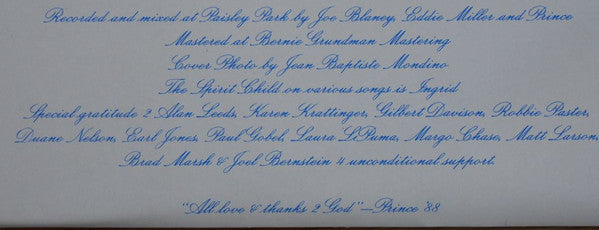 Recorded and mixed at Paisley Park by Joe Blaney, Eddie Miller and Prince
Mastered at Bernie Grundman Mastering
Cover Photo by Jean Baptiste Mondino
The Spirit Child on various songs is Ingrid
Special gratitude 2 Alan Leeds, Karen Krattinger, Gilbert Davison, Robbie Paster,
Duane Nelson, Earl Jones, Paul Gobel, Laura LiPuma, Margo Chase, Matt Larson,
Brad Marsh & Joel Bernstein 4 unconditional support.
"All love & thanks 2 God"—Prince '88